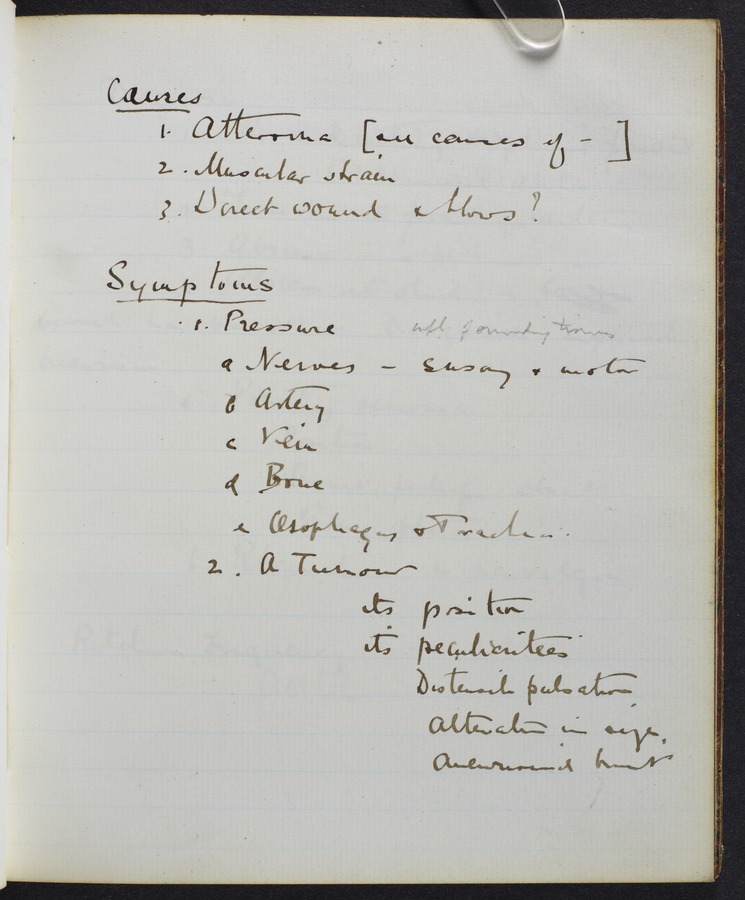 Causes
1. Atheroma [all causes of - ]
2. Muscular strain
3. Direct wound & blows?
Symptoms
1. Pressure
a Nerves - sensory & motor
b Artery
c Vein
d Bone
e Œsophagus & Trachea.
2. A Tumour
its position
its peculiarities
Distensile pulsation
Alteration in size.
Aneurismal bruit